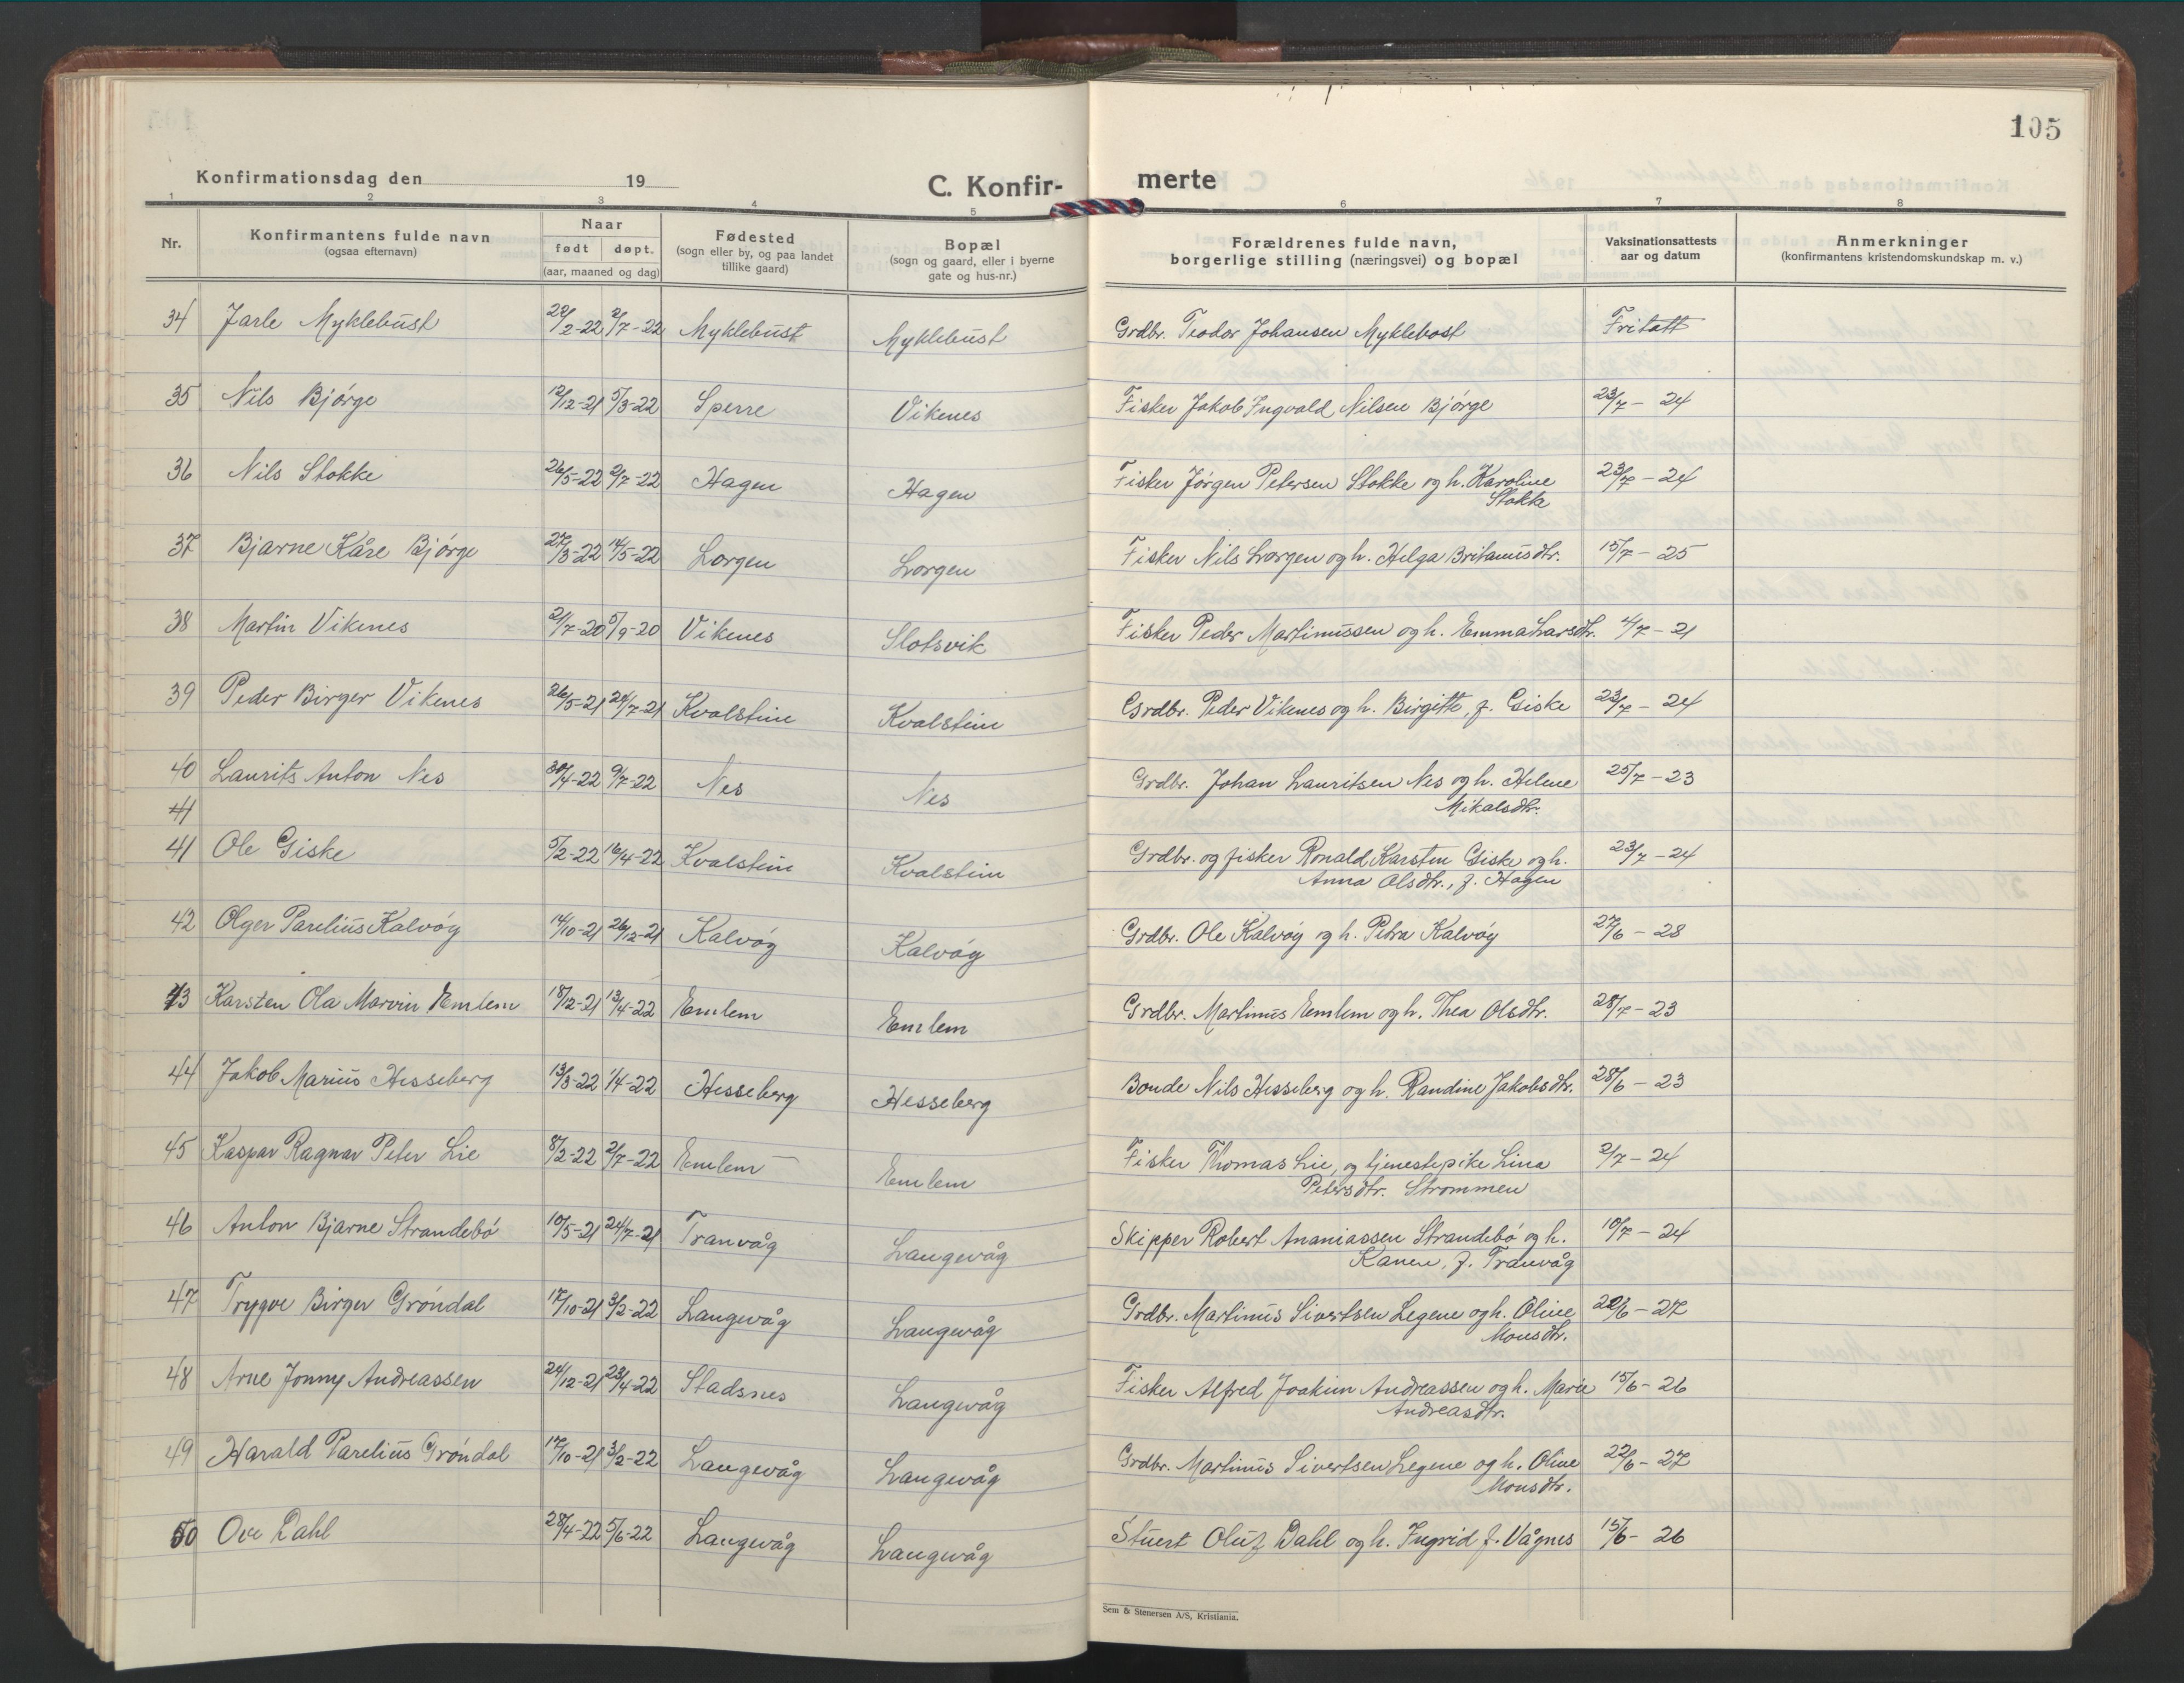 105
Konfirmationsdag den 19
C. Konfir- merte
1 2 3 4 5 6 7 8
Nr.
Konfirmantens fulde navn
(ogsaa efternavn)
Naar
født døpt.
(aar, maaned og dag)
Fødested
(sogn eller by, og paa landet
tillike gaard)
Bopæl
(sogn og gaard, eller i byerne
gate og hus-nr.)
Forældrenes fulde navn,
borgerlige stilling (næringsvei) og bopæl
Vaksinationsattests
aar og datum
Anmerkninger
(konfirmantens kristendomskundskap m. v.)
34 Jarle Myklebust 20/2-22 2/7-22 Myklebust Myklebust Grdbr. Teodor Johansen Myklebost Fritatt
35 Nils Bjørge 12/12-21 5/3-22 Sperre Vikenes Fisker Jakob Ingvald Nilsen Bjørge 23/7-24
36 Nils Stokke 26/5-22 2/7-22 Hagen Hagen Fisker Jørgen Petersen Stokke og h. Karoline 23/7-24
Stokke
37 Bjarne Kåre Bjørge 27/3-22 14/5-22 Lorgen Lorgen Fisker Nils Lorgen og h. Helga Britanusdtr. 15/7-25
38 Martin Vikenes 2/7-20 5/9-20 Vikenes Slotsvik Fisker Peder Martinussen og h. Emma Larsdtr. 4/7-21
39 Peder Birger Vikenes 26/5-21 24/7-21 Kvalstein Kvalstein Grdbr. Peder Vikenes og h. Birgitte, f. Giske 23/7-24
40 Laurits Anton Nes 30/4-22 9/7-22 Nes Nes Grdbr. Johan Lauritsen Nes og h. Helene 25/7-23
Mikalsdtr.
41
41 Ole Giske 5/2-22 16/4-22 Kvalstein Kvalstein Grdbr. og fisker Ronald Karsten Giske og h. 23/7-24
Anna Olsdtr., f. Hagen
42 Olger Parelius Kalvøy 14/10-21 26/12-21 Kalvøy Kalvøy Grdbr. Ole Kalvøy og h. Petra Kalvøy 27/6-28
43 Karsten Ola Marvin Emlem 18/12-21 13/4-22 Emlem Emlem Grdbr. Martinus Emlem og h. Thea Olsdtr. 28/7-23
44 Jakob Marius Hesseberg 13/3-22 1/4-22 Hesseberg Hesseberg Bonde Nils Hesseberg og h. Randine Jakobsdtr. 28/6-23
45 Kaspar Ragnar Peter Lie 8/2-22 2/7-22 Emlem Emlem Fisker Thomas Lie, og tjenestepike Lina 2/7-24
Petersdtr. Strommen
46 Anton Bjarne Strandebø 10/5-21 24/7-21 Tranvåg Langevåg Skipper Robert Ananiassen Strandebø og h. 10/7-24
Karen, f. Tranvåg
47 Trygve Birger Grøndal 17/10-21 3/2-22 Langevåg Langevåg Grdbr. Martinus Sivertsen Legene og h. Oline 22/6-27
Monsdtr.
48 Arne Jonny Andreassen 24/12-21 23/4-22 Stadsnes Langevåg Fisker Alfred Joakim Andreassen og h. Marie 15/6-26
Andreasdtr.
49 Harald Parelius Grøndal 17/10-21 3/2-22 Langevåg Langevåg Grdbr. Martinus Sivertsen Legene og h. Oline 22/6-27
Monsdtr.
50 Ove Dahl 28/4-22 5/6-22 Langevåg Langevåg Stuert Oluf Dahl og h. Ingrid f. Vågnes 15/6-26
Sem & Stenersen A/S, Kristiania.